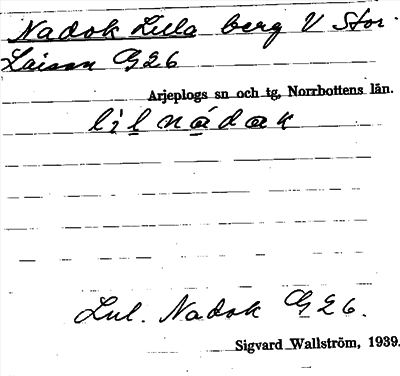 Nadok Lilla berg V Stor-
Laisan G26
Arjeplogs sn och tg, Norrbottens län.
lil nádak
Lul. Nadok G26.
Sigvard Wallström, 1939.